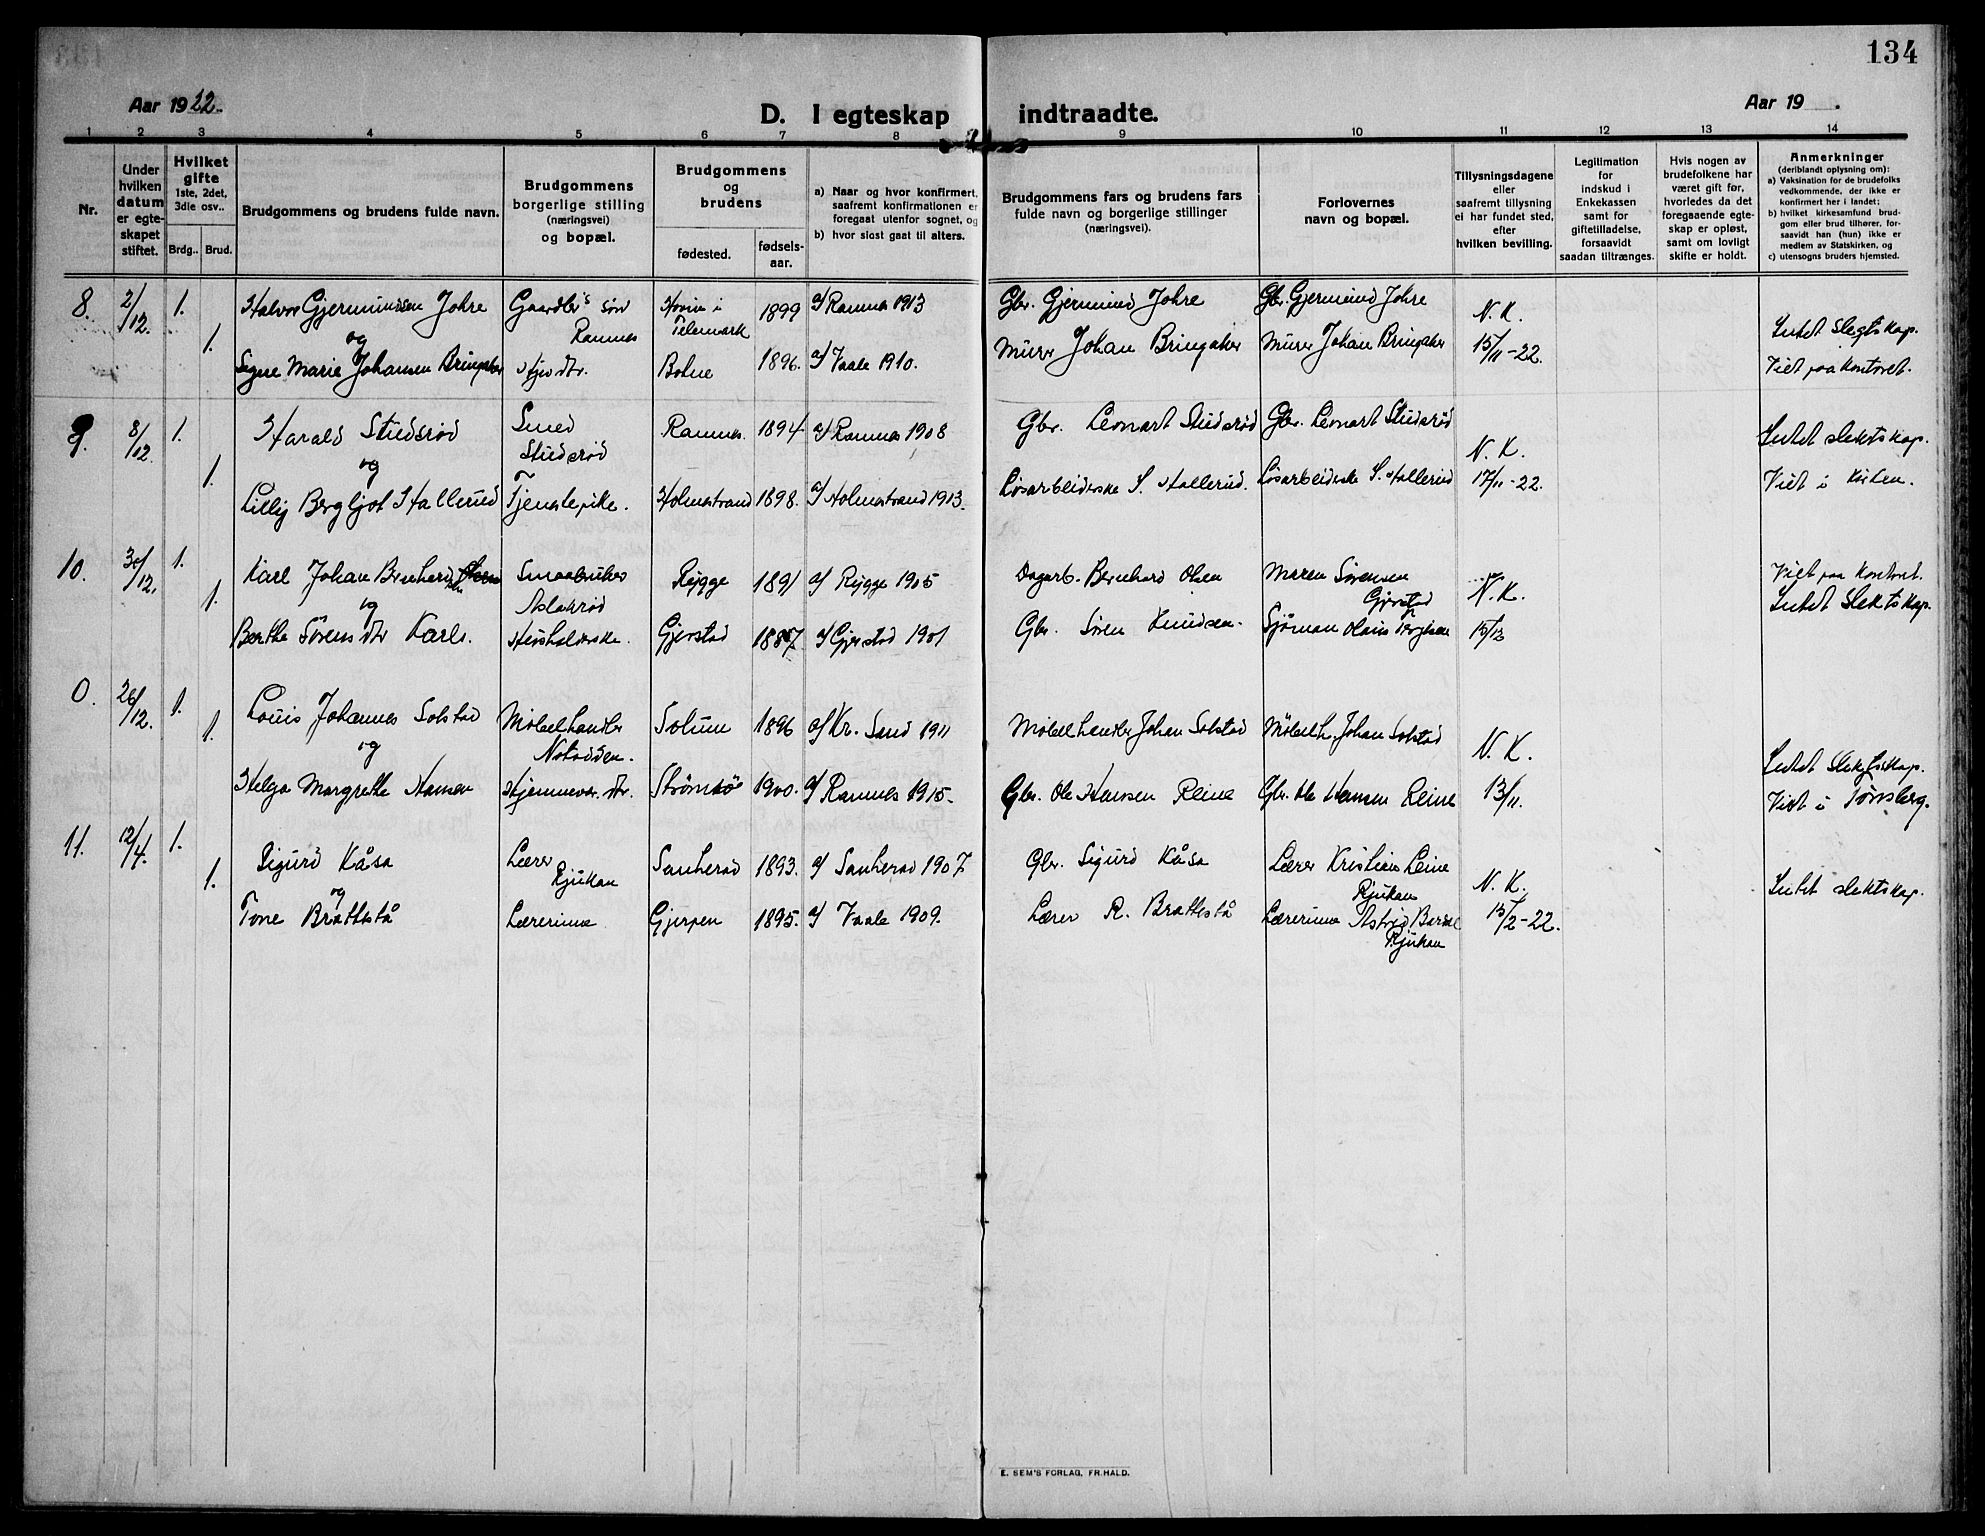 134
Aar 1922.
D. I egteskap indtraadte.
Aar 19 .
1 2 3 4 5 6 7 8 9 10 11 12 13 14
Nr.
Under hvilken datum er egteskapet stiftet.
Hvilket gifte
1ste, 2det, 3die osv..
Brdg.. Brud.
Brudgommens og brudens fulde navn.
Brudgommens borgerlige stilling (næringsvei) og bopæl.
Brudgommens og brudens
fødested. fødsels-aar.
a) Naar og hvor konfirmert, saafremt konfirmationen er foregaat utenfor sognet, og
b) hvor sidst gaat til alters.
Brudgommens fars og brudens fars fulde navn og borgerlige stillinger (næringsvei).
Forlovernes navn og bopæl.
Tillysningsdagene eller saafremt tillysning ei har fundet sted, efter hvilken bevilling.
Legitimation for indskud i Enkekassen samt for giftetilladelse, forsaavidt saadan tiltrænges.
Hvis nogen av brudefolkene har været gift før, hvorledes da det foregaaende egteskap er opløst, samt om lovligt skifte er holdt.
Anmerkninger
(deriblandt oplysning om):
a) Vaksination for de brudefolks vedkommende, der ikke er konfirmert her i landet;
b) hvilket kirkesamfund brudgom eller brud tilhører, forsaavidt han (hun) ikke er medlem av Statskirken, og
c) utensogns bruders hjemsted.
8. 2/12. 1. Halvor Gjermundsen Johre Gaardbr's søn Ramnes Hovin i Telemark 1899 a/ Ramnes 1913 Gbr. Gjermund Johre Gbr. Gjermund Johre N. K.
1. og Intet slegtskap.
Signe Marie Johansen Bringaker Hjv. dtr. Botne 1896. a/ Vaale 1910. Murer Johan Bringaker Murer Johan Bringaker 15/11-22. Viet paa kontoret.
9. 8/12. 1. Harald Studsrød Smed Studsrød Ramnes. 1894 a/ Ramnes 1908 Gbr. Leonart Studsrød Gbr. Leonart Studsrød N. K. Intet slektskap.
1. og
Lilly Bergljot Hallerud Tjenestepike. Holmestrand 1898. a/ Holmestrand 1913. Løsarbeiderske S. Hallerud. Løsarbeiderske S. Hallerud 17/11-22. Viet i kirken.
10. 30/12. 1. Karl Johan Bernhard Smaabruker Aslakrød Rygge 1891 a/ Rygge 1905 Dagarb. Bernhard Olsen Maren Sørensen Gjerstad N. K. Viet paa kontoret.
1. og Intet slektskap.
Berthe Sørens dtr Karls. Husholderske. Gjerstad 1887. a/ Gjerstad 1901 Gbr. Søren Knudsen. Sjømann Olaus 15/12
0. 26/12. 1. Louis Johannes Solstad Møbelhandler Notodden. Solum 1896 a/ Kr. Sand 1911 Møbelhandler Johan Solstad Møbelh. Johan Solstad N. K.
1. og Intet slektskap.
Helga Margrethe Hansen Hjemmevær. dtr. Strømsø 1900. a/ Ramnes 1915. Gbr. Ole Hansen Reine Gbr. Ole Hansen Reine 13/11. Viet i Tønsberg.
11. 12/4. 1. Sigurd Kåsa Lærer Rjukan Sauherad 1893. a/ Sauherad 1907 Gbr. Sigurd Kåsa Lærer Kristian Leine Rjukan N. K.
1. og Intet slektskap.
Tone Brattestå Lærerinne Gjerpen 1895. a/ Vaale 1909. Lærer R. Brattestå Lærerinne Astrid Rjukan 15/2-22.
E. SEM'S FORLAG, FR.HALD.